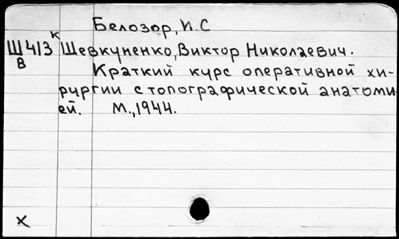 Белозор, И.С
Ш413 к Шевкуненко, Виктор Николаевич.
В
Краткий курс оперативной хи-
рургии с топографической анатоми-
ей. М., 1944.
х